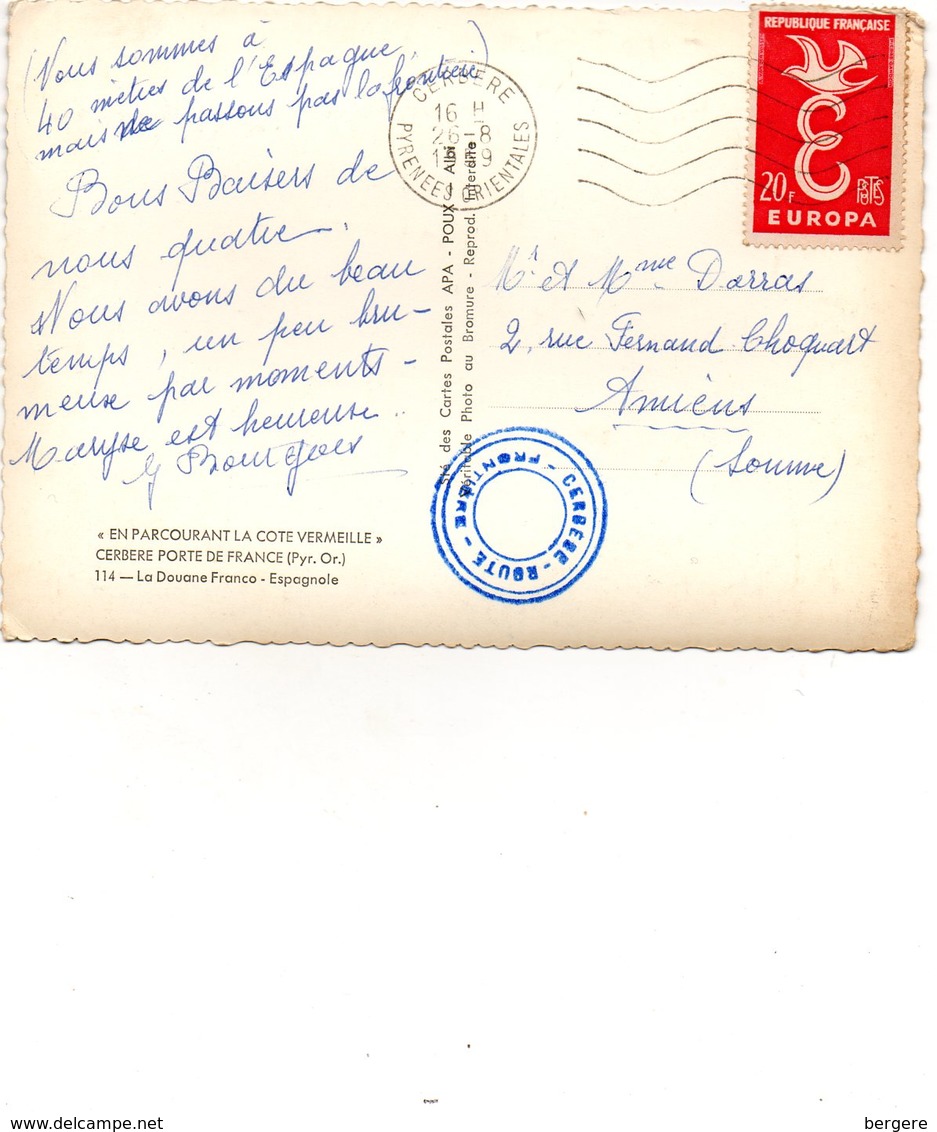 (Nous sommes à
40 mètres de l'Espagne,
mais ne passons pas la frontière)
Bons Baisers de
nous quatre.
Nous avons du beau
temps, un peu bru-
meux par moments -
Maryse est heureuse..
« EN PARCOURANT LA COTE VERMEILLE »
CERBERE PORTE DE FRANCE (Pyr. Or.)
114 — La Douane Franco - Espagnole
CERBERE
16 H
26 - 8
19 9
PYRENEES ORIENTALES
Sté des Cartes Postales APA - POUX - Albi
Véritable Photo au Bromure - Reprod. Interdite
REPUBLIQUE FRANÇAISE
20F
POSTES
EUROPA
Mr et Mme Darras
2, rue Fernand Choquart
Amiens
(Somme)
CERBERE - ROUTE - FRONTIERE -
bergere